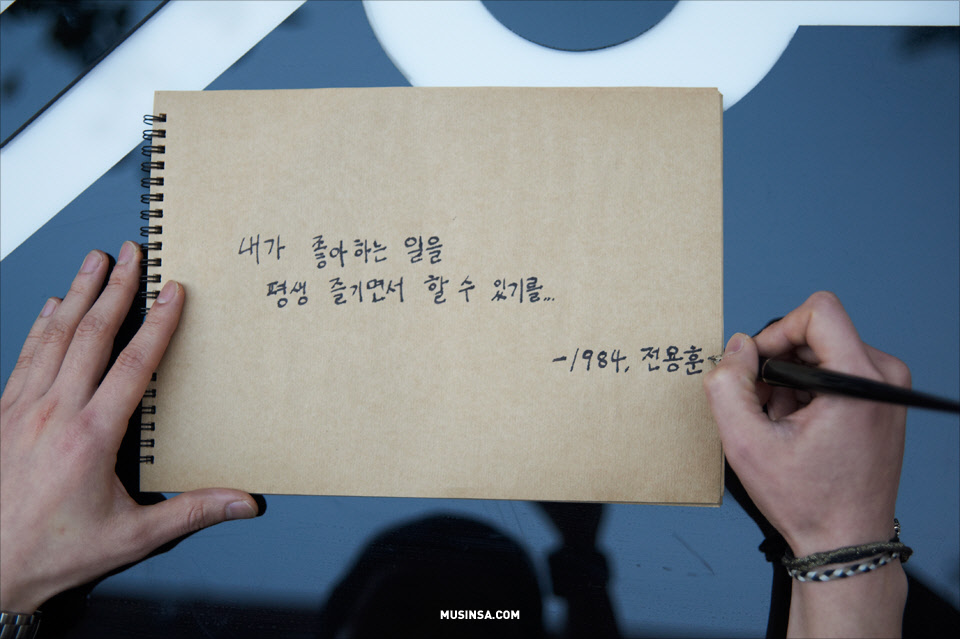 내가 좋아하는 일을
평생 즐기면서 할 수 있기를...
-1984, 전용훈
MUSINSA.COM